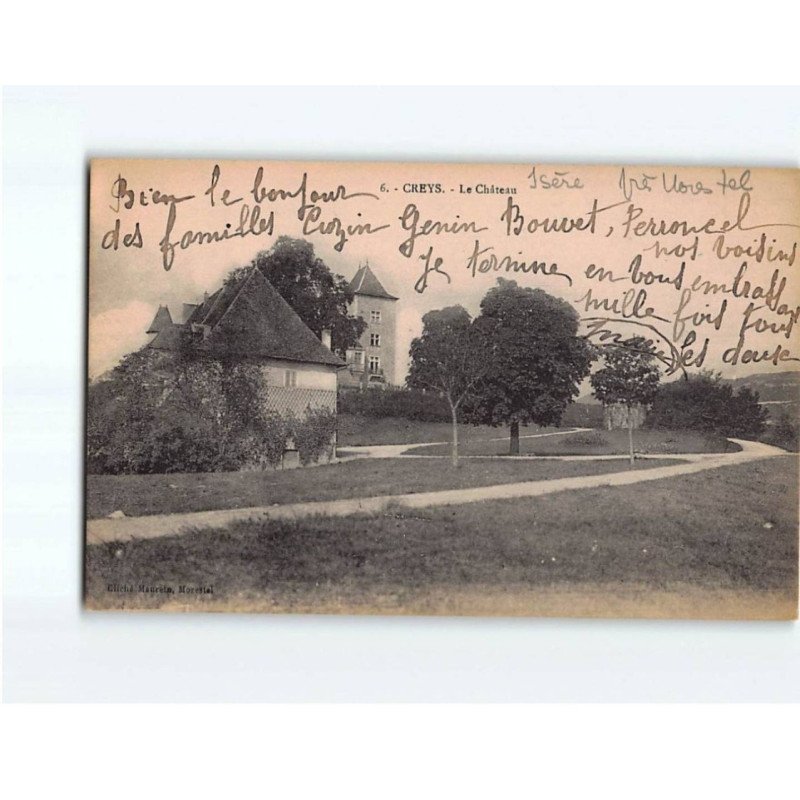 6. - CREYS. - Le Château
Isère près Morestel
Bien le bonjour
des familles Cuzin Genin Bouvet, Perroncel
nos voisins
Je termine en vous embrassant
mille fois tous
les deux
Cliché Maurein, Morestel